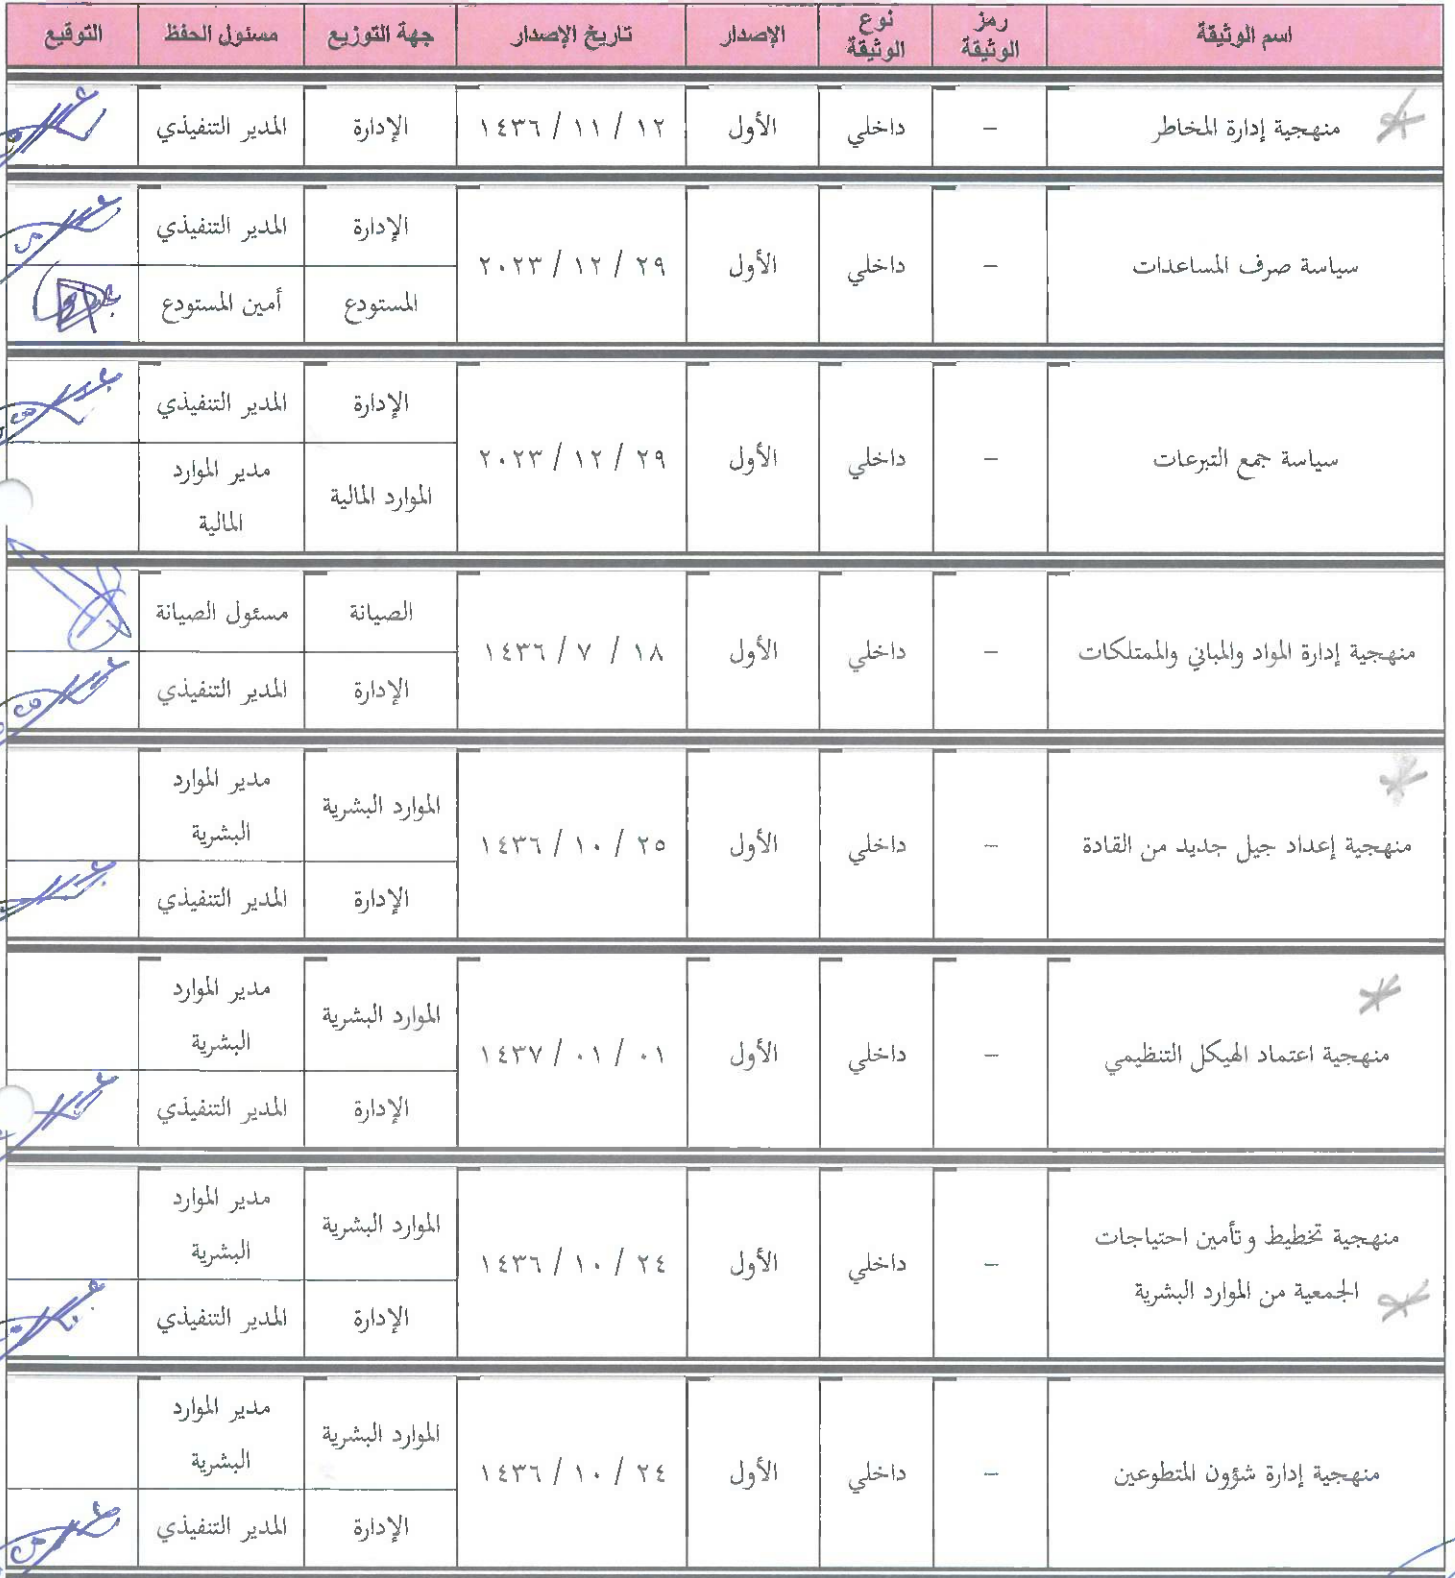 اسم الوثيقة رمز الوثيقة نوع الوثيقة الإصدار تاريخ الإصدار جهة التوزيع مسئول الحفظ التوقيع
منهجية إدارة المخاطر – داخلي الأول ١٢ / ١١ / ١٤٣٦ الإدارة المدير التنفيذي
سياسة صرف المساعدات – داخلي الأول ٢٩ / ١٢ / ٢٠٢٣ الإدارة المدير التنفيذي
المستودع أمين المستودع
سياسة جمع التبرعات – داخلي الأول ٢٩ / ١٢ / ٢٠٢٣ الإدارة المدير التنفيذي
الموارد المالية مدير الموارد المالية
منهجية إدارة المواد والمباني والممتلكات – داخلي الأول ١٨ / ٧ / ١٤٣٦ الصيانة مسئول الصيانة
الإدارة المدير التنفيذي
منهجية إعداد جيل جديد من القادة – داخلي الأول ٢٥ / ١٠ / ١٤٣٦ الموارد البشرية مدير الموارد البشرية
الإدارة المدير التنفيذي
منهجية اعتماد الهيكل التنظيمي – داخلي الأول ٠١ / ٠١ / ١٤٣٧ الموارد البشرية مدير الموارد البشرية
الإدارة المدير التنفيذي
منهجية تخطيط وتأمين احتياجات
الجمعية من الموارد البشرية – داخلي الأول ٢٤ / ١٠ / ١٤٣٦ الموارد البشرية مدير الموارد البشرية
الإدارة المدير التنفيذي
منهجية إدارة شؤون المتطوعين – داخلي الأول ٢٤ / ١٠ / ١٤٣٦ الموارد البشرية مدير الموارد البشرية
الإدارة المدير التنفيذي